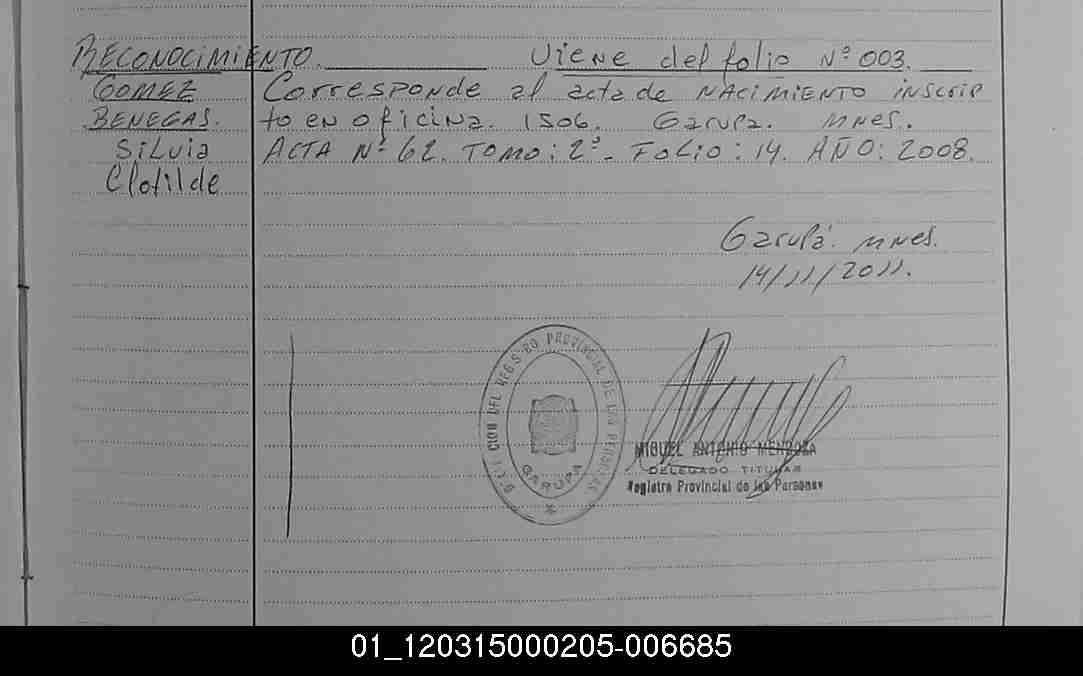 RECONOCIMIENTO. Viene del folio Nº 003.
GOMEZ Corresponde al acta de NACIMIENTO inscrip
BENEGAS. to en oficina. 1506. Garupa. Mnes.
Silvia ACTA Nº 62. TOMO: 2º. FOLIO: 14. AÑO: 2008.
Clotilde
Garupá. Mnes.
14/11/2011.
DIRECCION DEL REGISTRO PROVINCIAL DE LAS PERSONAS
GARUPA
MIGUEL ANTONIO MENDOZA
DELEGADO TITULAR
Registro Provincial de las Personas
01_120315000205-006685